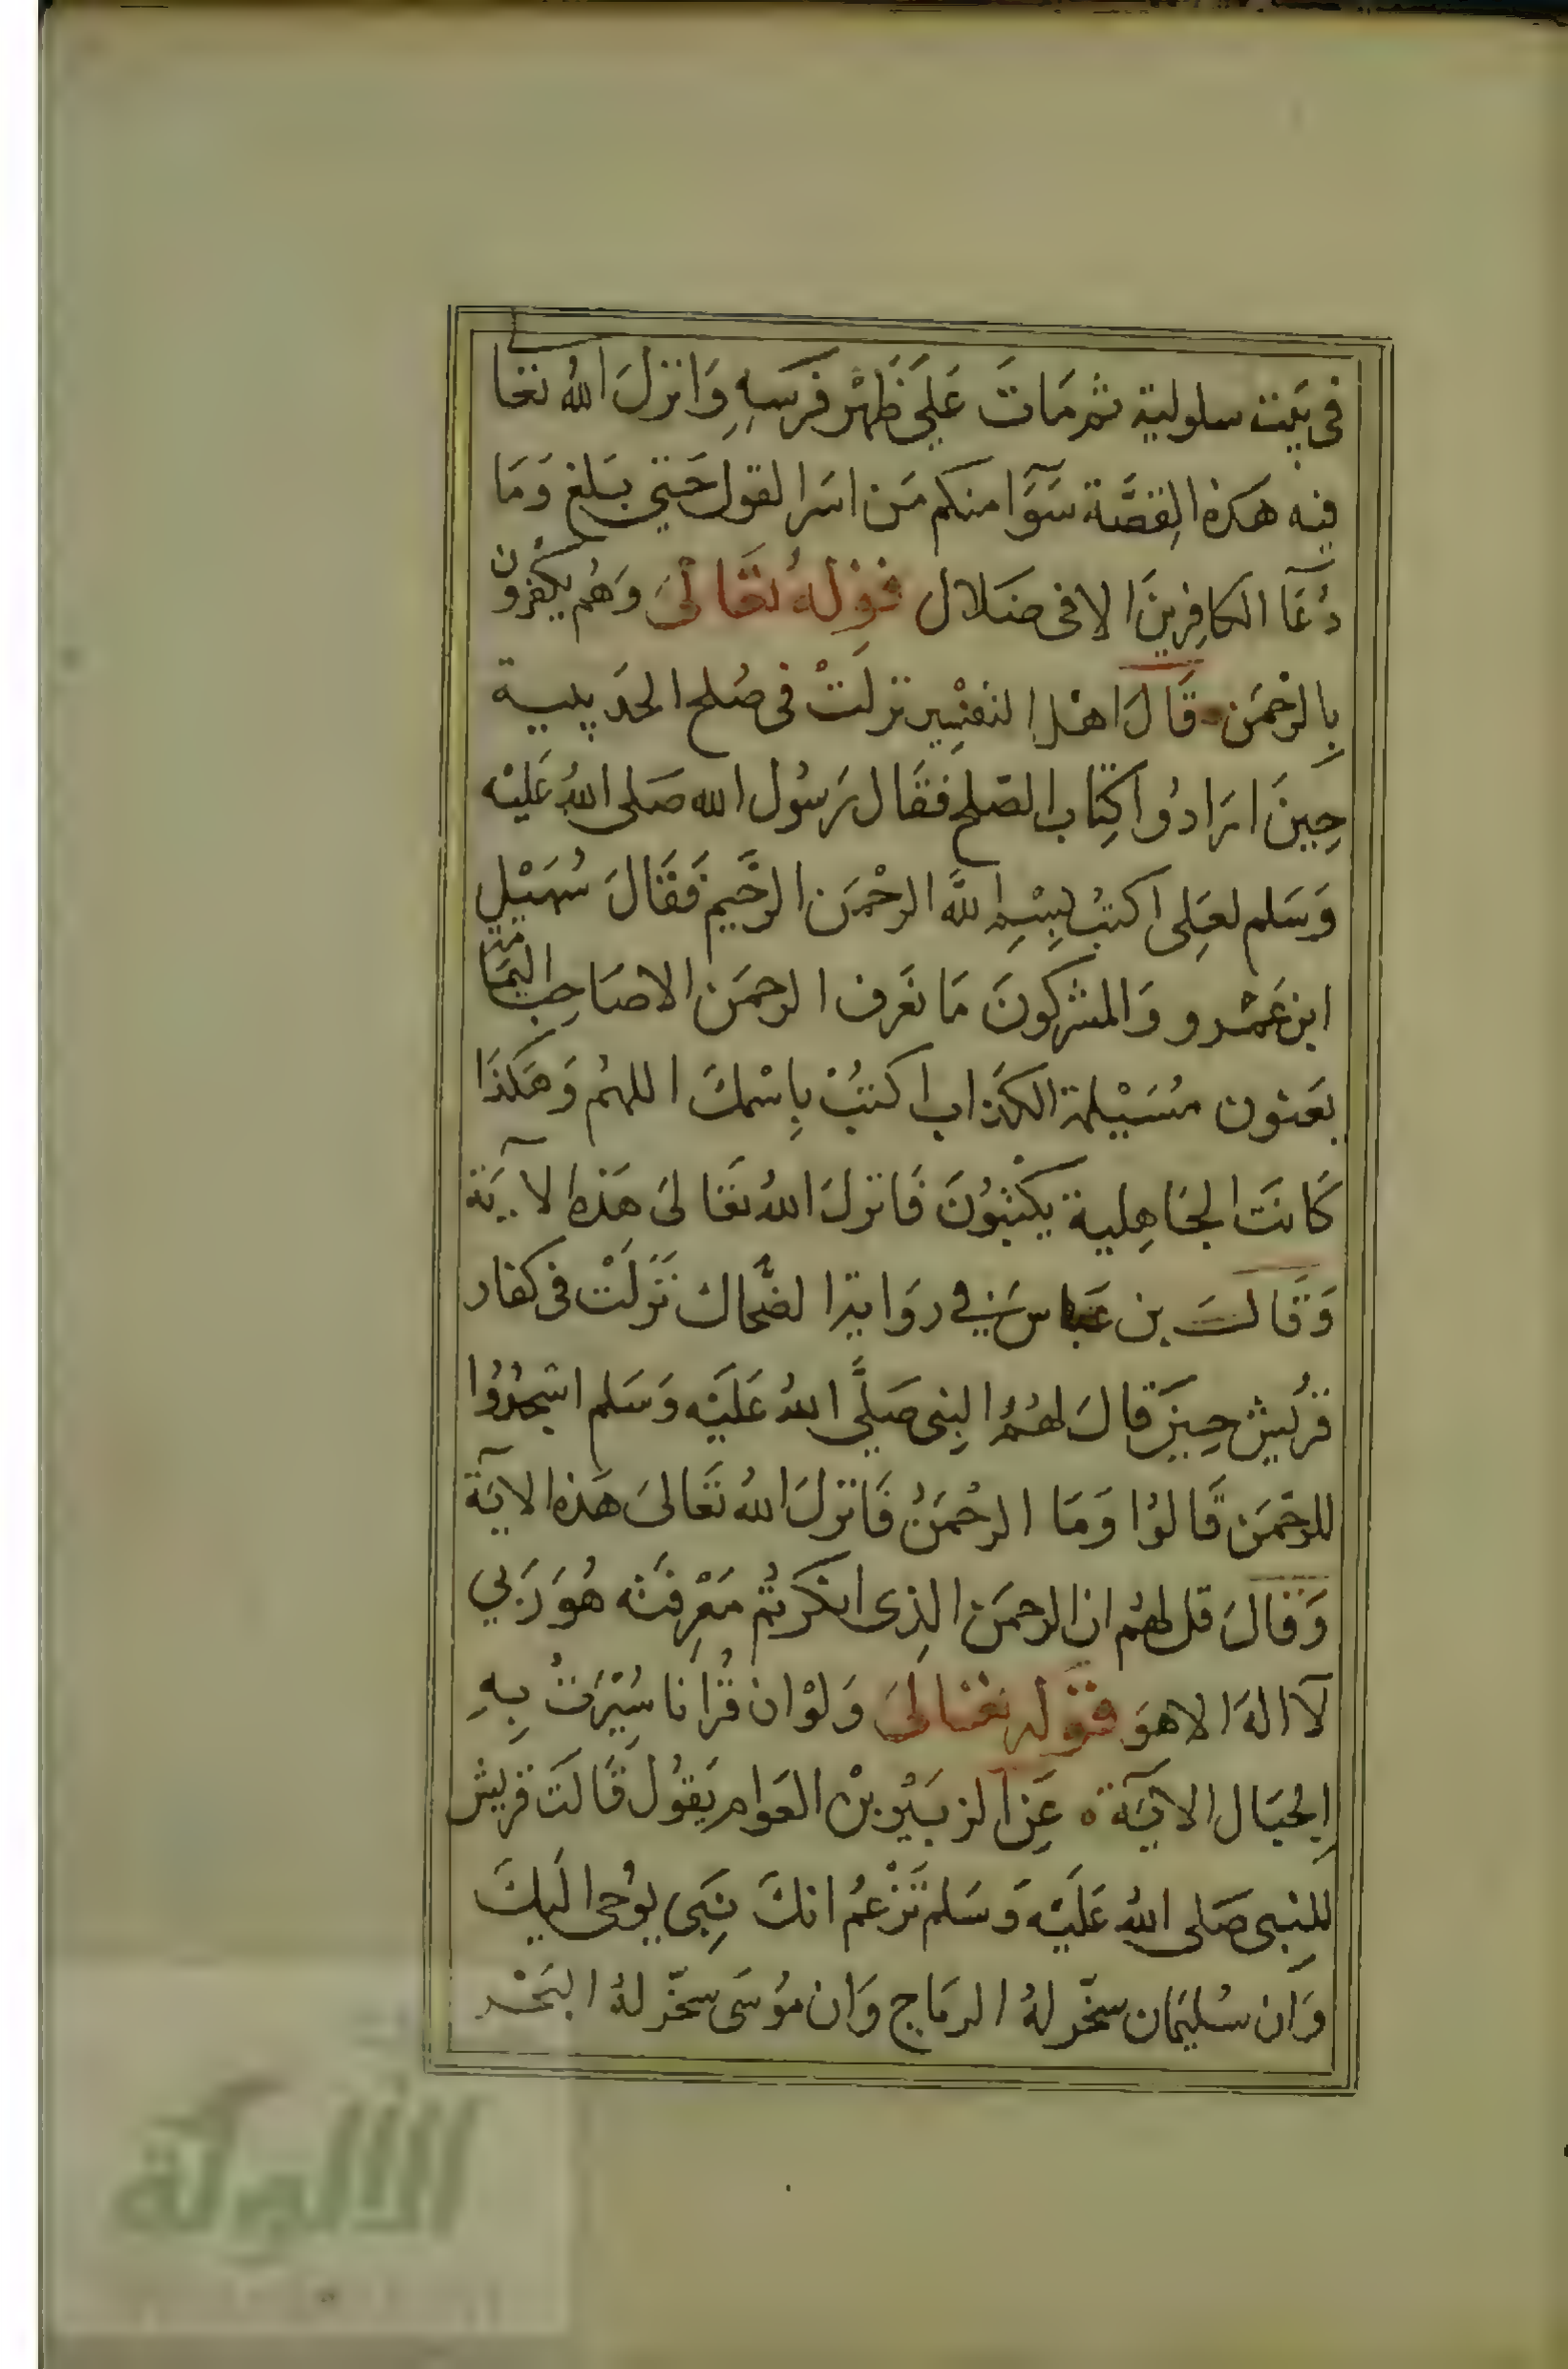 في بيت سلولية ثم مات على ظهر فرسه وانزل الله تعالى
فيه هذه القصة سوآ منكم من اسر القول حتى بلغ وما
دعآ الكافرين الا في ضلال قوله تعالى وهم يكفرون
بالرحمن قال اهل التفسير نزلت في صلح الحديبية
حين ارادوا كتاب الصلح فقال رسول الله صلى الله عليه
وسلم لعلي اكتب بسم الله الرحمن الرحيم فقال سهيل
ابن عمرو والمشركون ما نعرف الرحمن الا صاحب اليمامة
يعنون مسيلمة الكذاب اكتب باسمك اللهم وهكذا
كانت الجاهلية يكتبون فانزل الله تعالى هذه الآية
وقال بن عباس في رواية الضحاك نزلت في كفار
قريش حين قال لهم النبي صلى الله عليه وسلم اسجدوا
للرحمن قالوا وما الرحمن فانزل الله تعالى هذه الآية
وقال قل لهم ان الرحمن الذي انكرتم معرفته هو ربي
لآ اله الا هو قوله تعالى ولو ان قرانا سيرت به
الجبال الآية عن الزبير بن العوام يقول قالت قريش
للنبي صلى الله عليه وسلم تزعم انك نبي يوحى اليك
وان سليمان سخر له الرياح وان موسى سخر له البحر
الألوكة